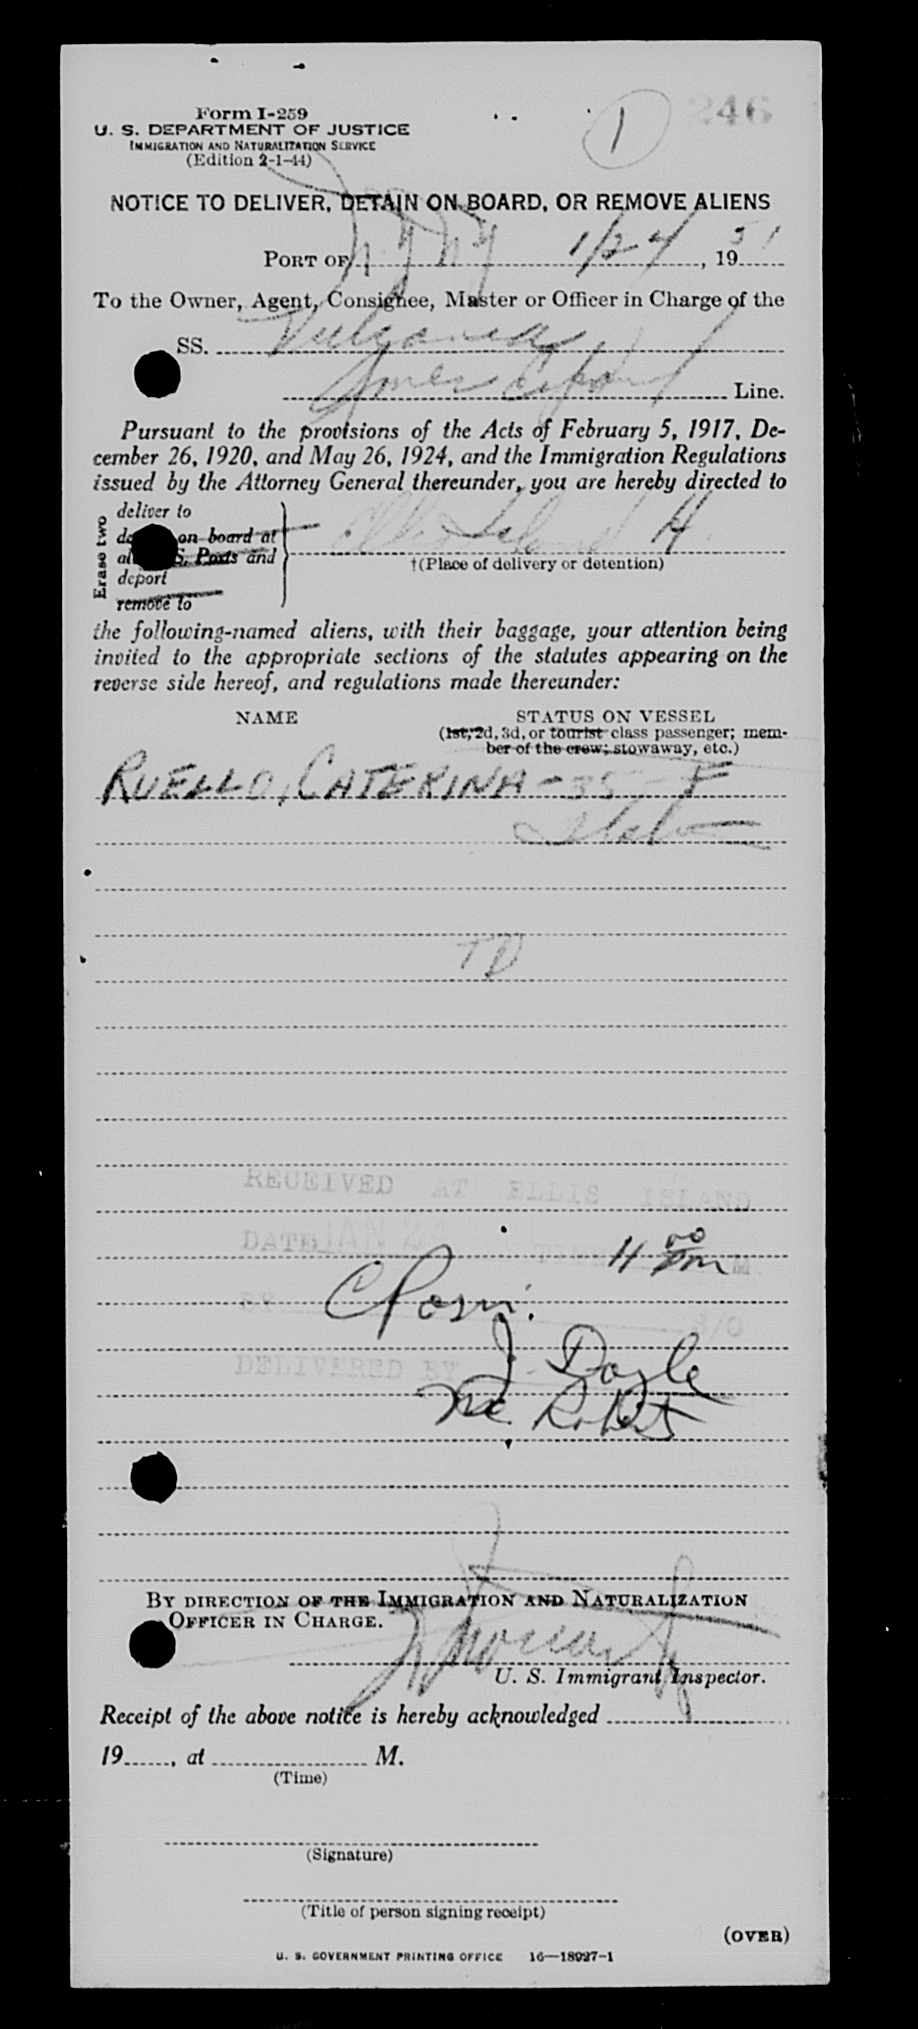 Form I-259
U. S. DEPARTMENT OF JUSTICE
IMMIGRATION AND NATURALIZATION SERVICE
(Edition 2-1-44)
1
246
NOTICE TO DELIVER, DETAIN ON BOARD, OR REMOVE ALIENS
PORT OF N Y N Y 1/24, 1951
To the Owner, Agent, Consignee, Master or Officer in Charge of the
SS. Vulcania
Line.
Pursuant to the provisions of the Acts of February 5, 1917, De-
cember 26, 1920, and May 26, 1924, and the Immigration Regulations
issued by the Attorney General thereunder, you are hereby directed to
Erase two
deliver to
on board at
S. Ports and
deport
remove to
Ellis Island
†(Place of delivery or detention)
the following-named aliens, with their baggage, your attention being
invited to the appropriate sections of the statutes appearing on the
reverse side hereof, and regulations made thereunder:
NAME STATUS ON VESSEL
(1st, 2d, 3d, or tourist class passenger; mem-
ber of the crew; stowaway, etc.)
RUELLO, CATERINA - 35 - F
TD
RECEIVED AT ELLIS ISLAND
DATE JAN 24 TIME M.
11 00
BY S/O
DELIVERED BY
J. Doyle
BY DIRECTION OF THE IMMIGRATION AND NATURALIZATION
OFFICER IN CHARGE.
U. S. Immigrant Inspector.
Receipt of the above notice is hereby acknowledged
19, at M.
(Time)
(Signature)
(Title of person signing receipt)
(OVER)
U. S. GOVERNMENT PRINTING OFFICE 16—18927-1